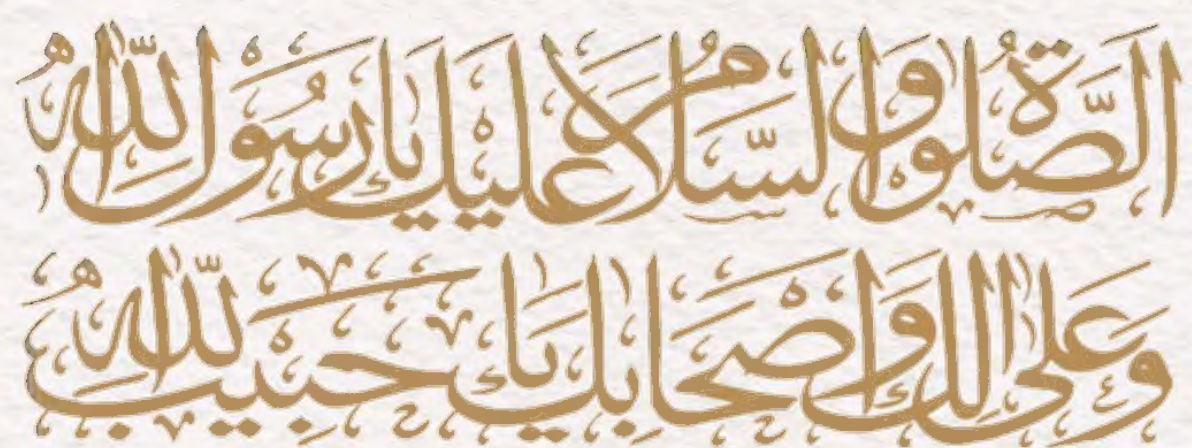 الصَّلٰوةُ وَالسَّلَامُ عَلَيْكَ يَا رَسُوْلَ اللهِ
وَعَلٰى اٰلِكَ وَاَصْحَابِكَ يَا حَبِيْبَ اللهِ